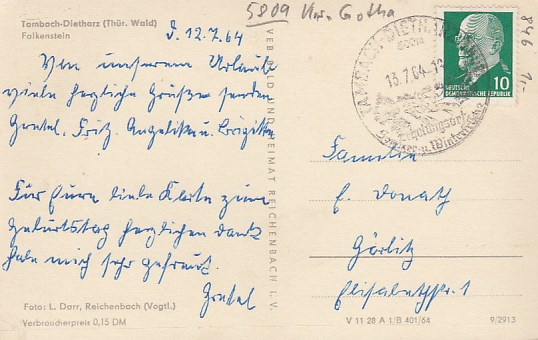 5809 Krs. Gotha
846 1-
Tambach-Dietharz (Thür. Wald)
Falkenstein
d. 12.7.64
Von unserem Urlaub
viele herzliche Grüße senden
Gretel, Fritz, Angelika u. Brigitte
Für Eure liebe Karte zum
Geburtstag herzlichen Dank
habe mich sehr gefreut.
Gretel
Foto: L. Darr, Reichenbach (Vogtl.)
Verbraucherpreis 0,15 DM
VEB BILD UND HEIMAT REICHENBACH I. V.
TAMBACH-DIETHARZ
13.7.64-12
Erholungsort
Sommer- u. Wintersport
10
DEUTSCHE
DEMOKRATISCHE REPUBLIK
Familie
E. Donath
Görlitz
Elisabethstr. 1
V 11 28 A 1/B 401/64
9/2913